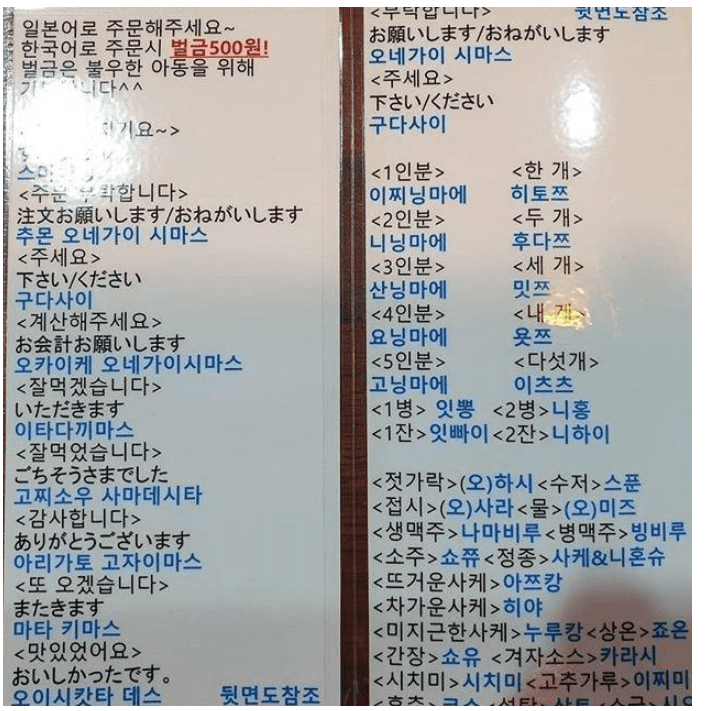 일본어로 주문해주세요~
한국어로 주문시 벌금500원!
벌금은 불우한 아동을 위해
^^
<주문 부탁합니다>
注文お願いします/おねがいします
추몬 오네가이 시마스
<주세요>
下さい/ください
구다사이
<계산해주세요>
お会計お願いします
오카이케 오네가이시마스
<잘먹겠습니다>
いただきます
이타다끼마스
<잘먹었습니다>
ごちそうさまでした
고찌소우 사마데시타
<감사합니다>
ありがとうございます
아리가토 고자이마스
<또 오겠습니다>
またきます
마타 키마스
<맛있었어요>
おいしかったです。
오이시캇타 데스 뒷면도참조
<부탁합니다> 뒷면도참조
お願いします/おねがいします
오네가이 시마스
<주세요>
下さい/ください
구다사이
<1인분> <한 개>
이찌닝마에 히토쯔
<2인분> <두 개>
니닝마에 후다쯔
<3인분> <세 개>
산닝마에 밋쯔
<4인분> <내 게>
요닝마에 욧쯔
<5인분> <다섯개>
고닝마에 이츠츠
<1병> 잇뽕 <2병>니홍
<1잔>잇빠이<2잔>니하이
<젓가락>(오)하시 <수저>스푼
<접시>(오)사라<물>(오)미즈
<생맥주>나마비루<병맥주>빙비루
<소주>쇼쮸<정종>사케&니혼슈
<뜨거운사케>아쯔캉
<차가운사케>히야
<미지근한사케>누루캉<상온>죠온
<간장>쇼유 <겨자소스>카라시
<시치미>시치미<고추가루>이찌미